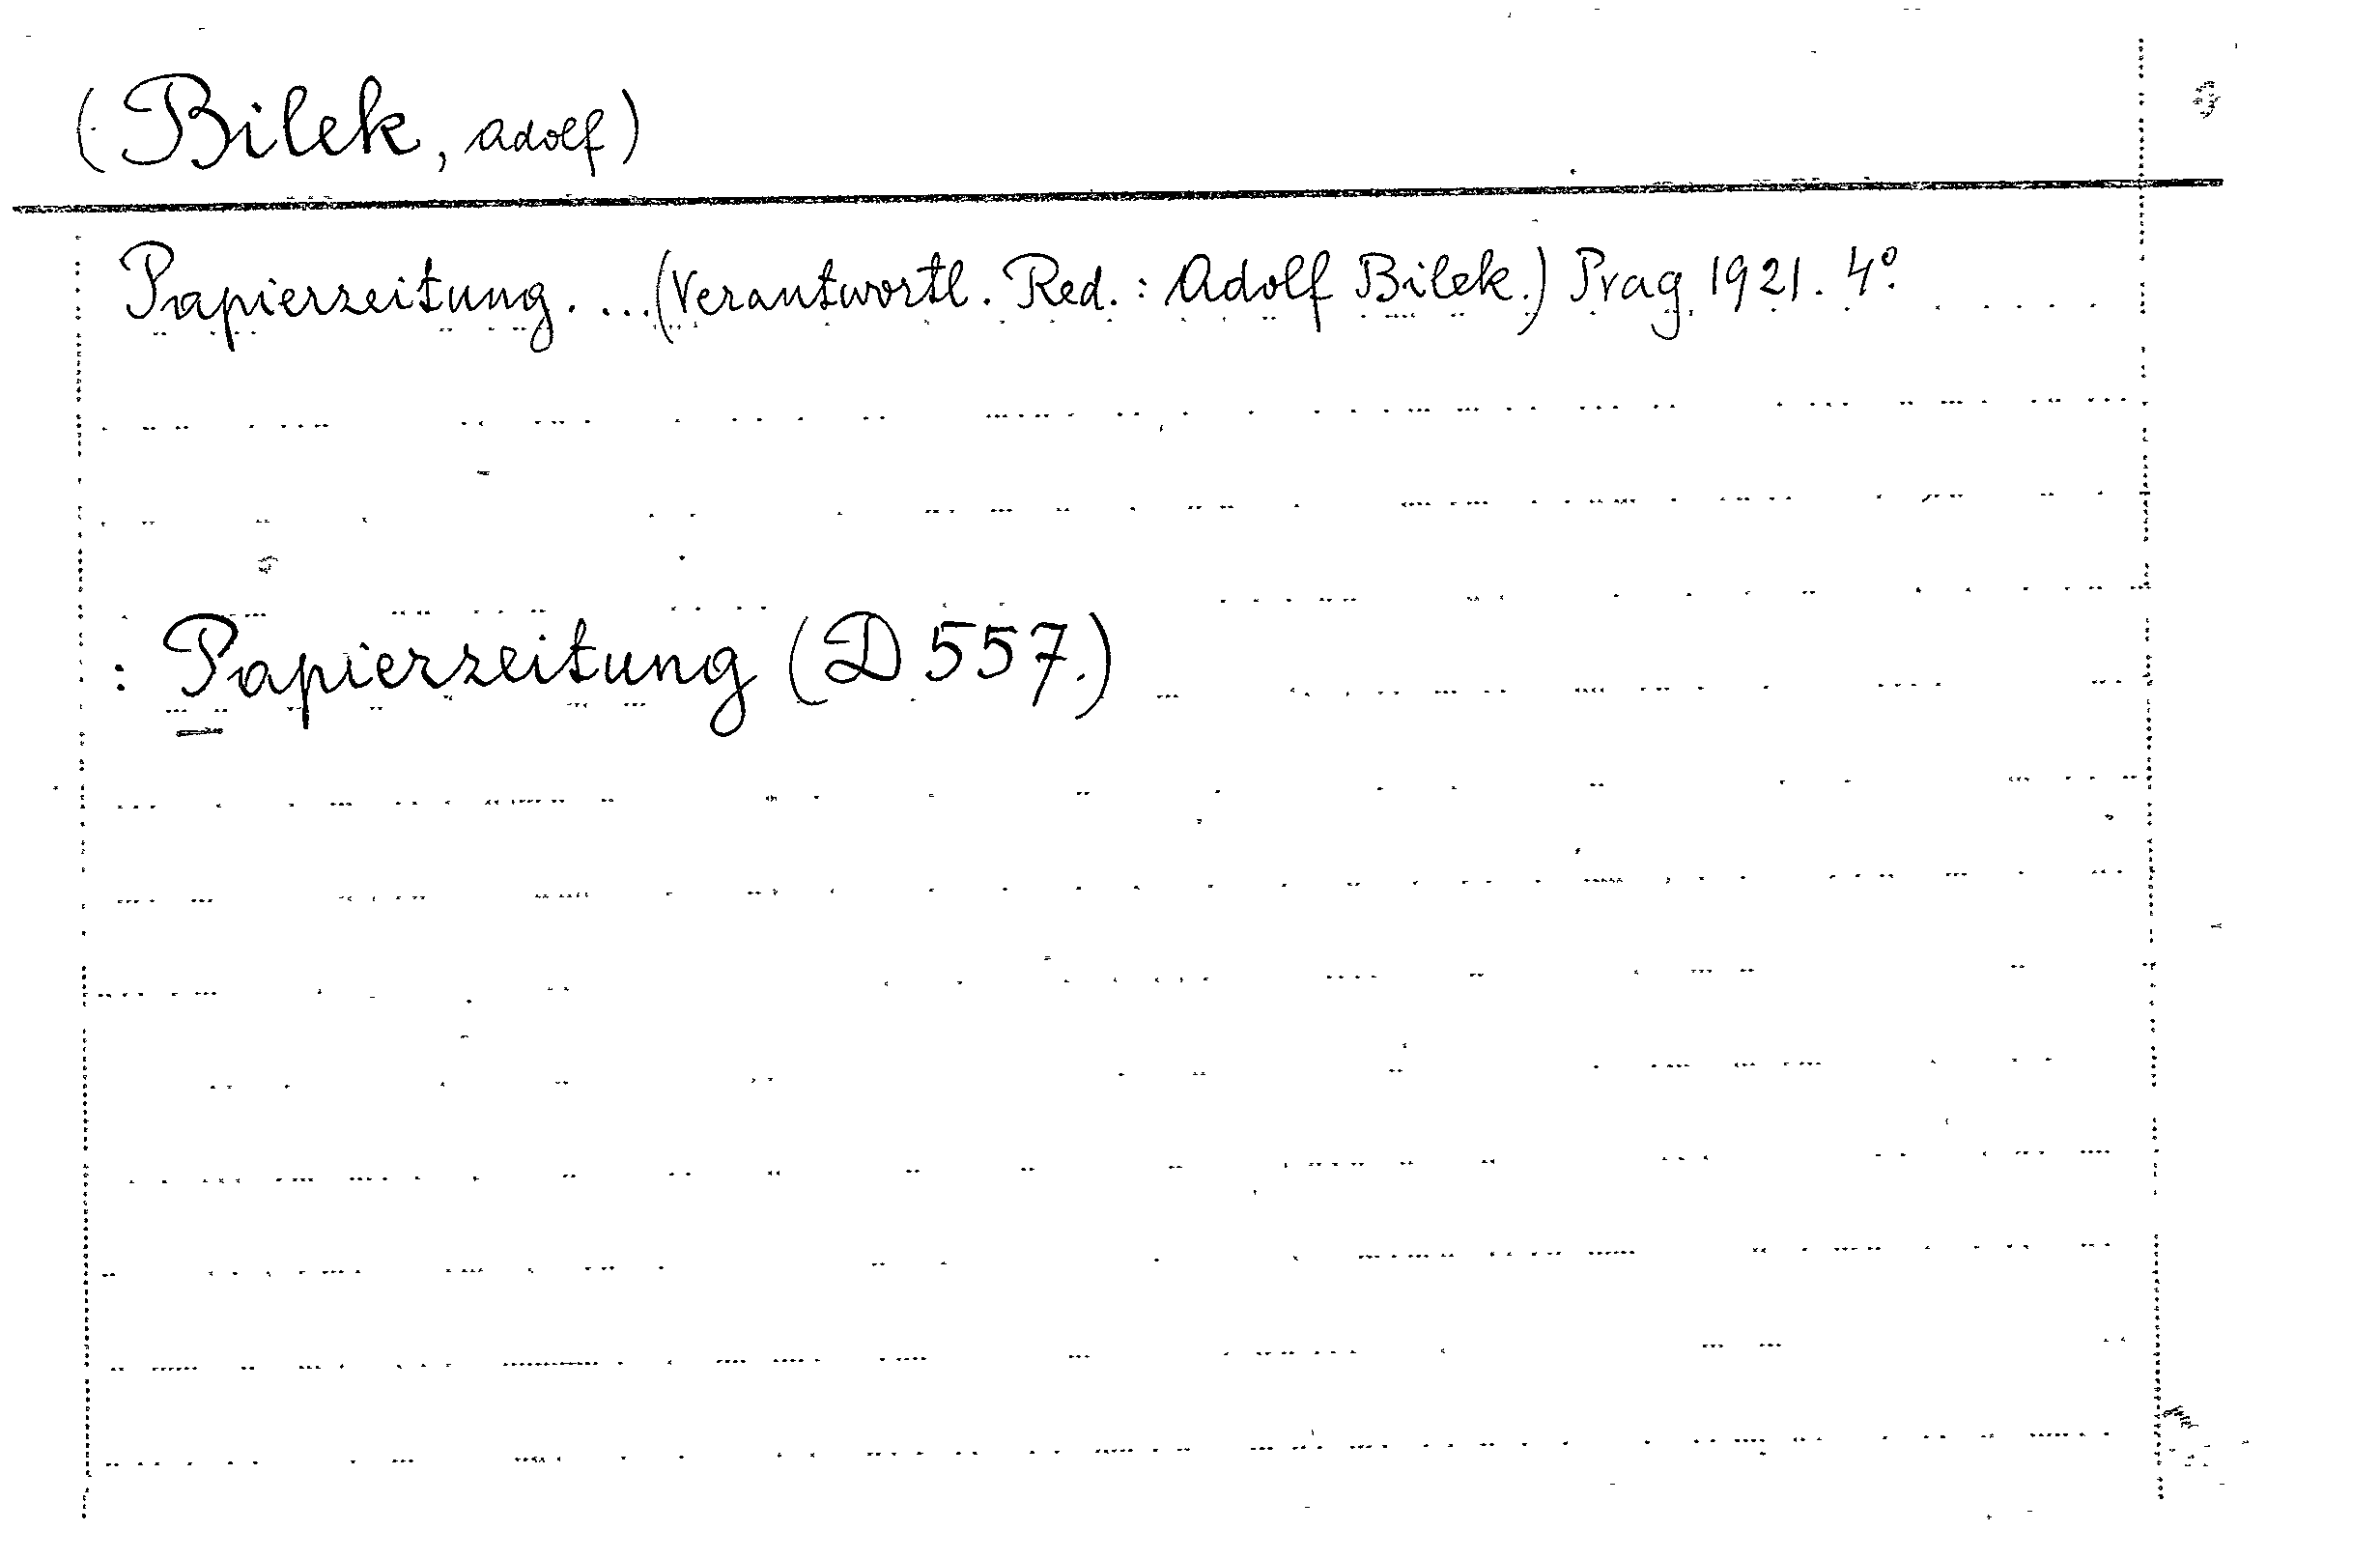 (Bilek, Adolf)
Papierzeitung. ... (Verantwortl. Red.: Adolf Bilek.) Prag 1921. 4°.
: Papierzeitung (D 557.)